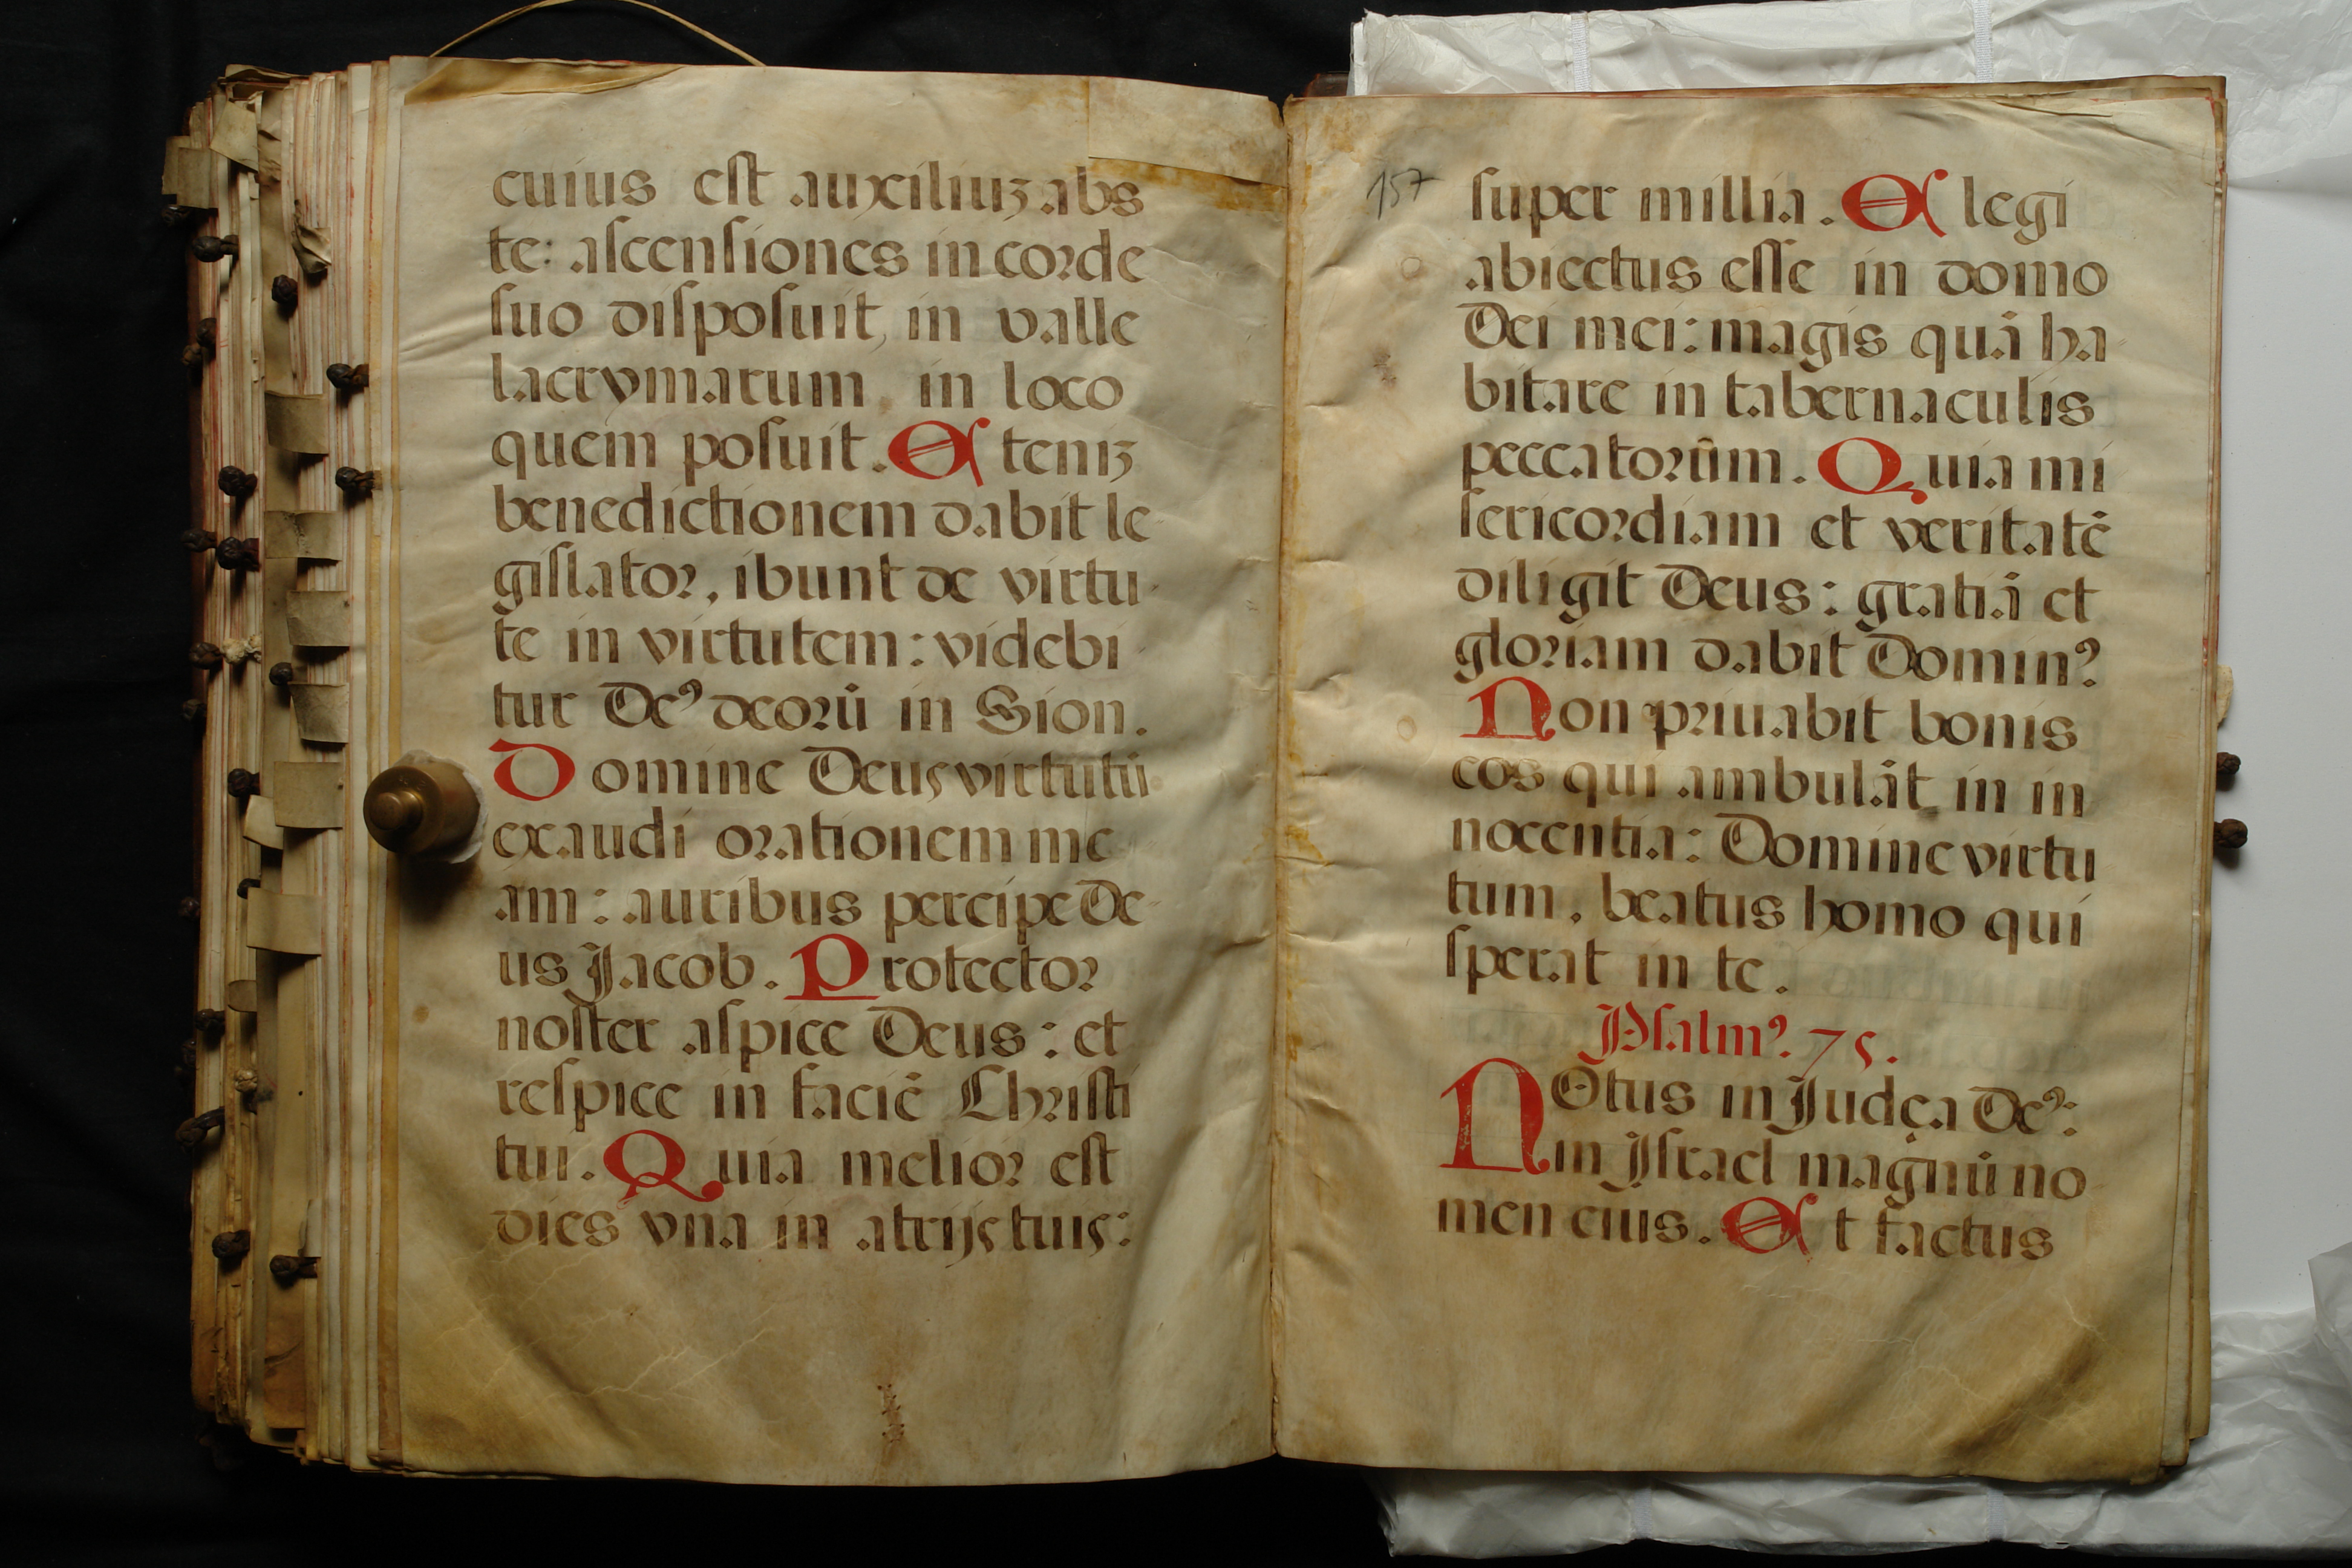 cuius est auxiliuz abs
te: ascensiones in corde
suo disposuit, in valle
lacrymarum, in loco
quem posuit. Eteniz
benedictionem dabit le-
gislator, ibunt de virtu-
te in virtutem: videbi
tur De⁹ deorū in Sion.
Domine Deus virtutū
exaudi orationem me
am: auribus percipe De-
us Jacob. Protector
noster aspice Deus: et
respice in faciē Christi
tui. Quia melior est
dies vna in atrijs tuis:
157
super millia. Elegi
abiectus esse in domo
Dei mei: magis quā ha
bitare in tabernaculis
peccatorūm. Quia mi
sericordiam et veritatē
diligit Deus: gratiā et
gloriam dabit Domin⁹.
Non priuabit bonis
eos qui ambulāt in in
nocentia: Domine virtu
tum, beatus homo qui
sperat in te.
Psalm⁹. 75.
NOtus in Judęa De⁹:
in Jsrael magnū no
men eius. Et factus